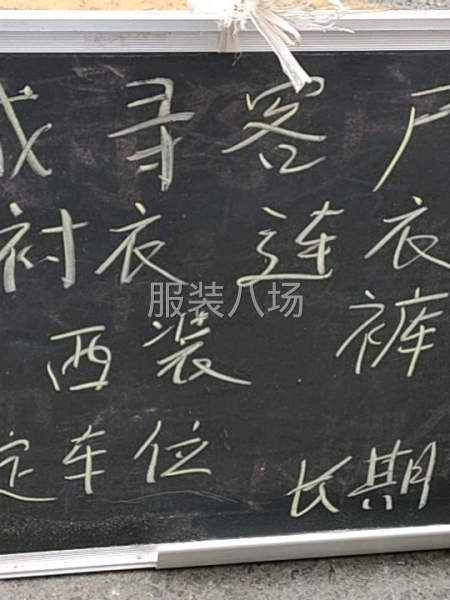 成寻客户
衬衣 连衣
服装八场
西装 裤
定车位 长期